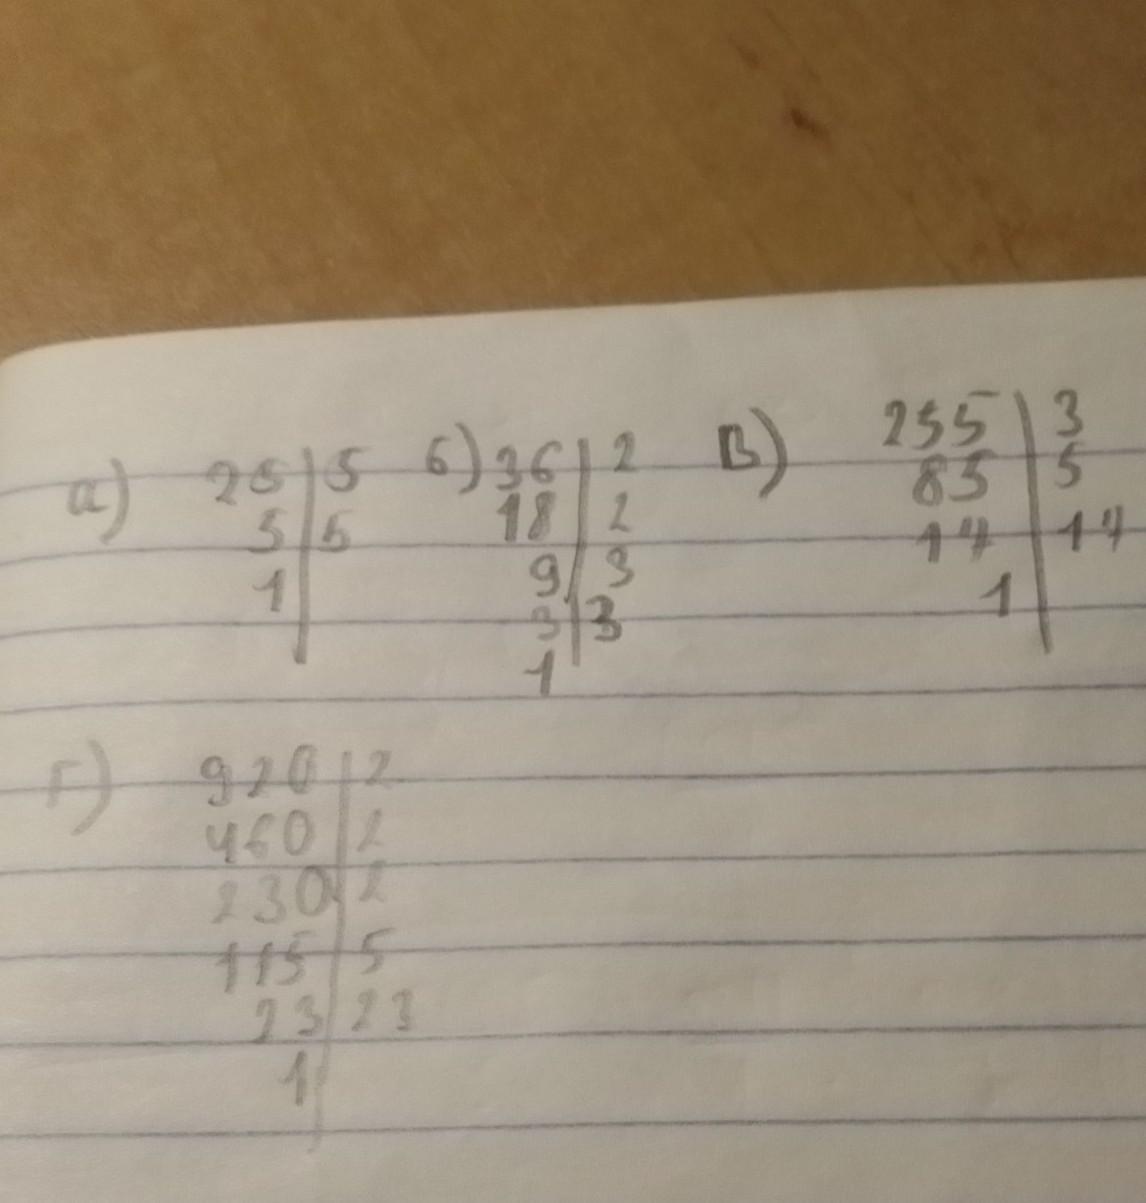 а) 25 | 5
5 | 5
1
б) 36 | 2
18 | 2
9 | 3
3 | 3
1
В) 255 | 3
85 | 5
17 | 17
1
Г) 920 | 2
460 | 2
230 | 2
115 | 5
23 | 23
1